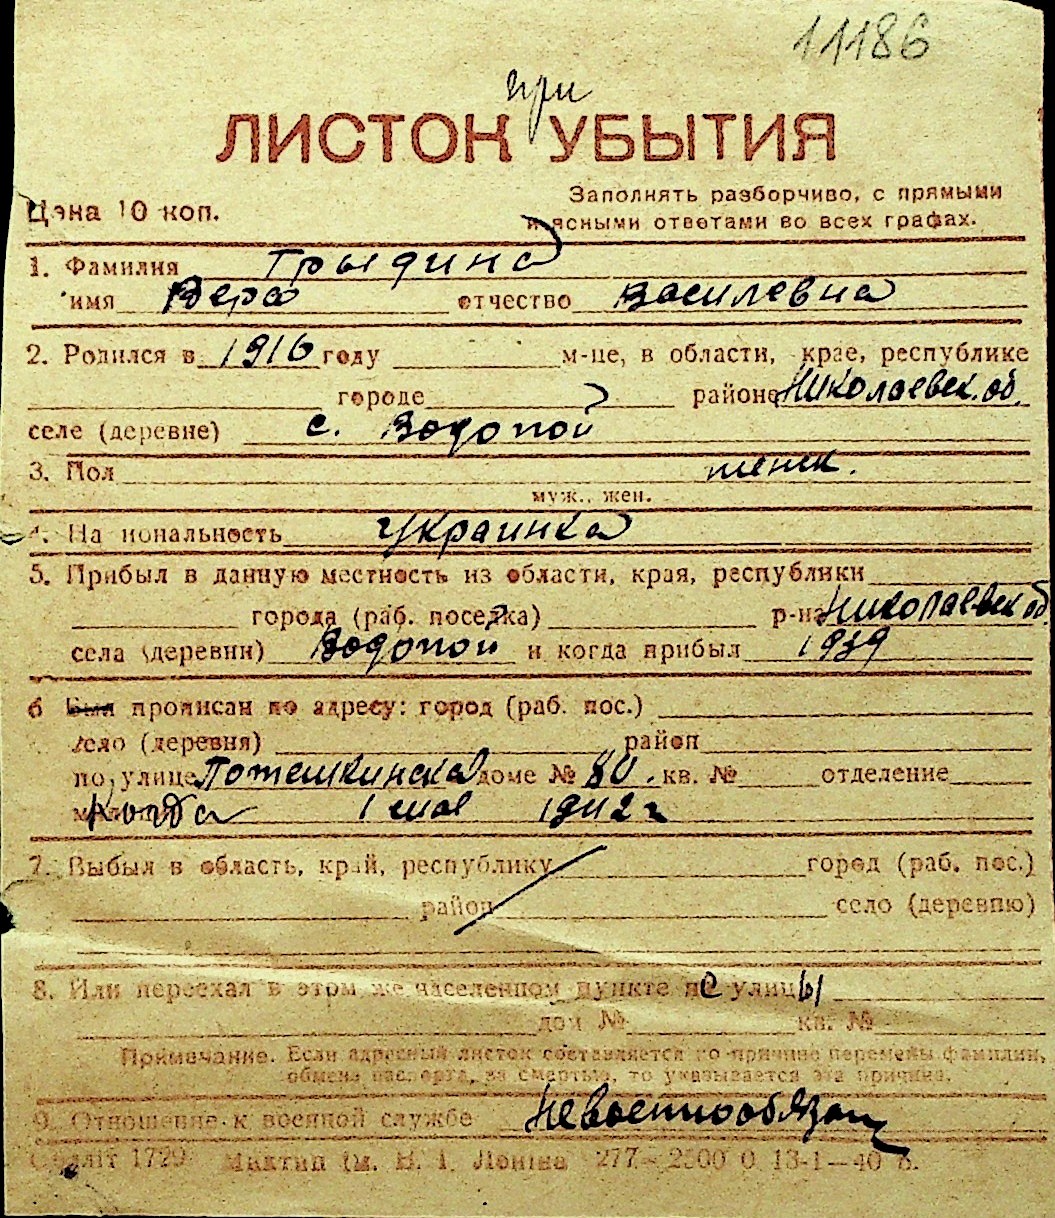 11186
при
ЛИСТОК УБЫТИЯ
Цена 10 коп.
Заполнять разборчиво, с прямыми
и ясными ответами во всех графах.
1. Фамилия Грыдина
имя Вера отчество Василевна
2. Родился в 1916 году м-це, в области, крае, республике
городе районе Николаевск. об.
селе (деревне) с. Водопой
3. Пол женск.
муж., жен.
4. Национальность Украинка
5. Прибыл в данную местность из области, края, республики
города (раб. поселка) р-на Николаевск об.
села (деревни) Водопой и когда прибыл 1939
6 Был прописан по адресу: город (раб. пос.)
село (деревня) район
по улице Потемкинска доме № 80. кв. № отделение
Когда 1 мая 1942 г
7. Выбыл в область, край, республику город (раб. пос.)
район село (деревню)
8. Или переехал в этом же населенном пункте с улицы
дом № кв. №
Примечание. Если адресный листок составляется по причине перемены фамилии,
обмена паспорта, за смертью, то указывается эта причина.
9. Отношение к военной службе невоеннообязан
1729 277—2500 0 13-1—40